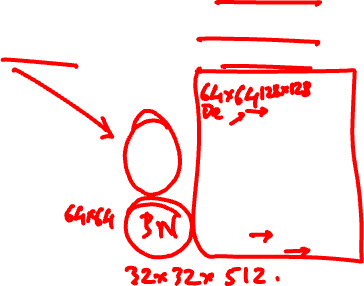 64×64 128×128
De
64×64
BN
32×32 × 512.